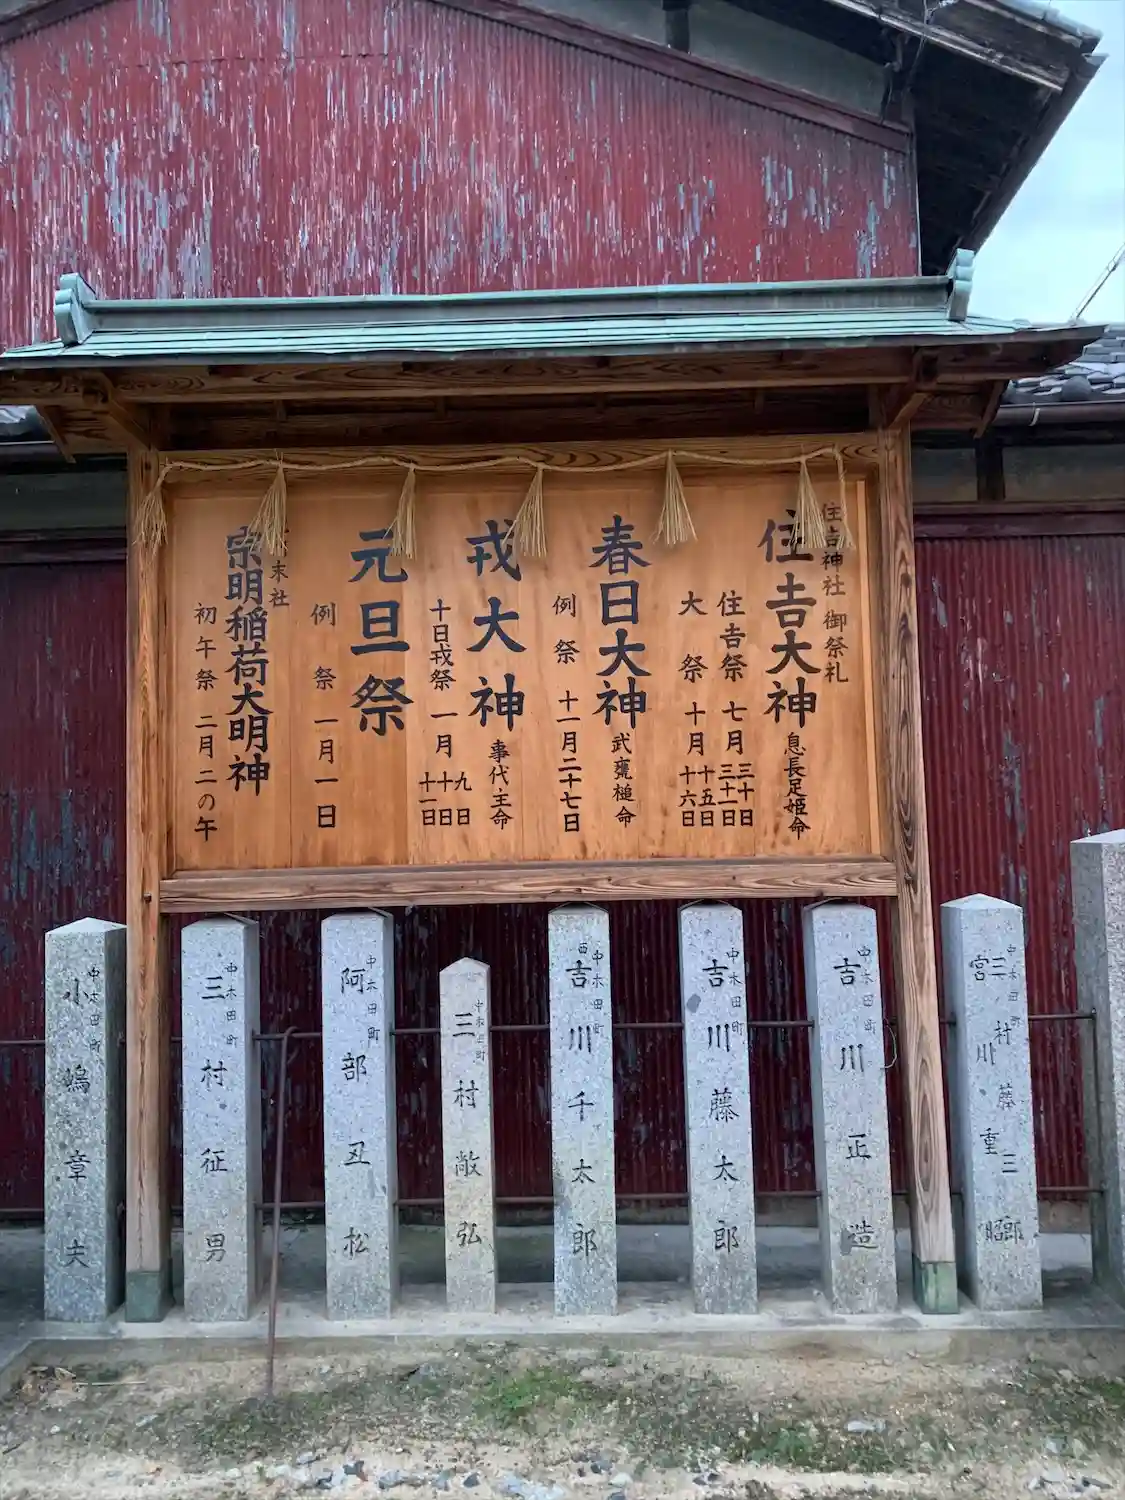 住吉神社 御祭礼
住吉大神 息長足姫命
住吉祭 七月 三十日 三十一日
大祭 十月 十五日 十六日
春日大神 武甕槌命
例祭 十一月二十七日
戎大神 事代主命
十日戎祭 一月 九日 十日 十一日
元旦祭
例祭 一月一日
末社
宗明稲荷大明神
初午祭 二月二の午
中木田町
三村藤三郎
宮川重昭
中木田町
吉川正造
中木田町
吉川藤太郎
中木田町
西
吉川千太郎
中木田町
三村敞弘
中木田町
阿部丑松
中木田町
三村征男
中木田町
小嶋章夫